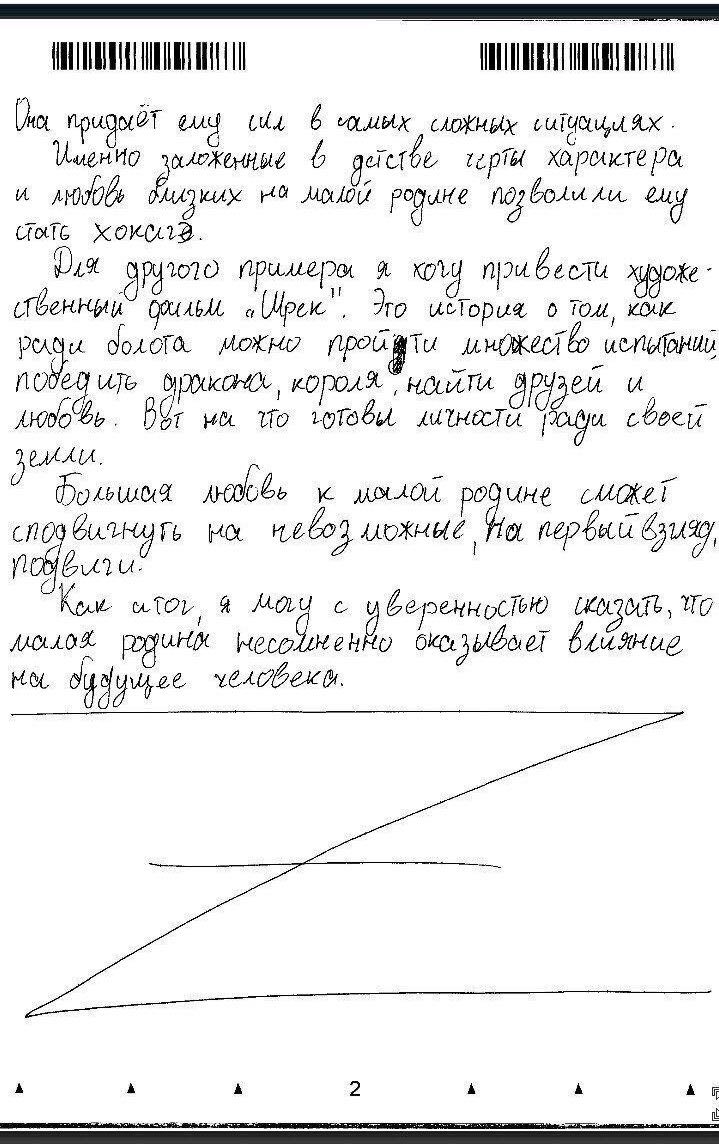 Она придаёт ему сил в самых сложных ситуациях.
Именно заложенные в детстве черты характера
и любовь близких на малой родине позволили ему
стать хокагэ.
Для другого примера я хочу привести художе-
ственный фильм „Шрек". Это история о том, как
ради болота можно пройти множество испытаний,
победить дракона, короля, найти друзей и
любовь. Вот на что готовы личности ради своей
земли.
Большая любовь к малой родине сможет
сподвигнуть на невозможные, на первый взгляд,
подвиги.
Как итог, я могу с уверенностью сказать, что
малая родина несомненно оказывает влияние
на будущее человека.
2